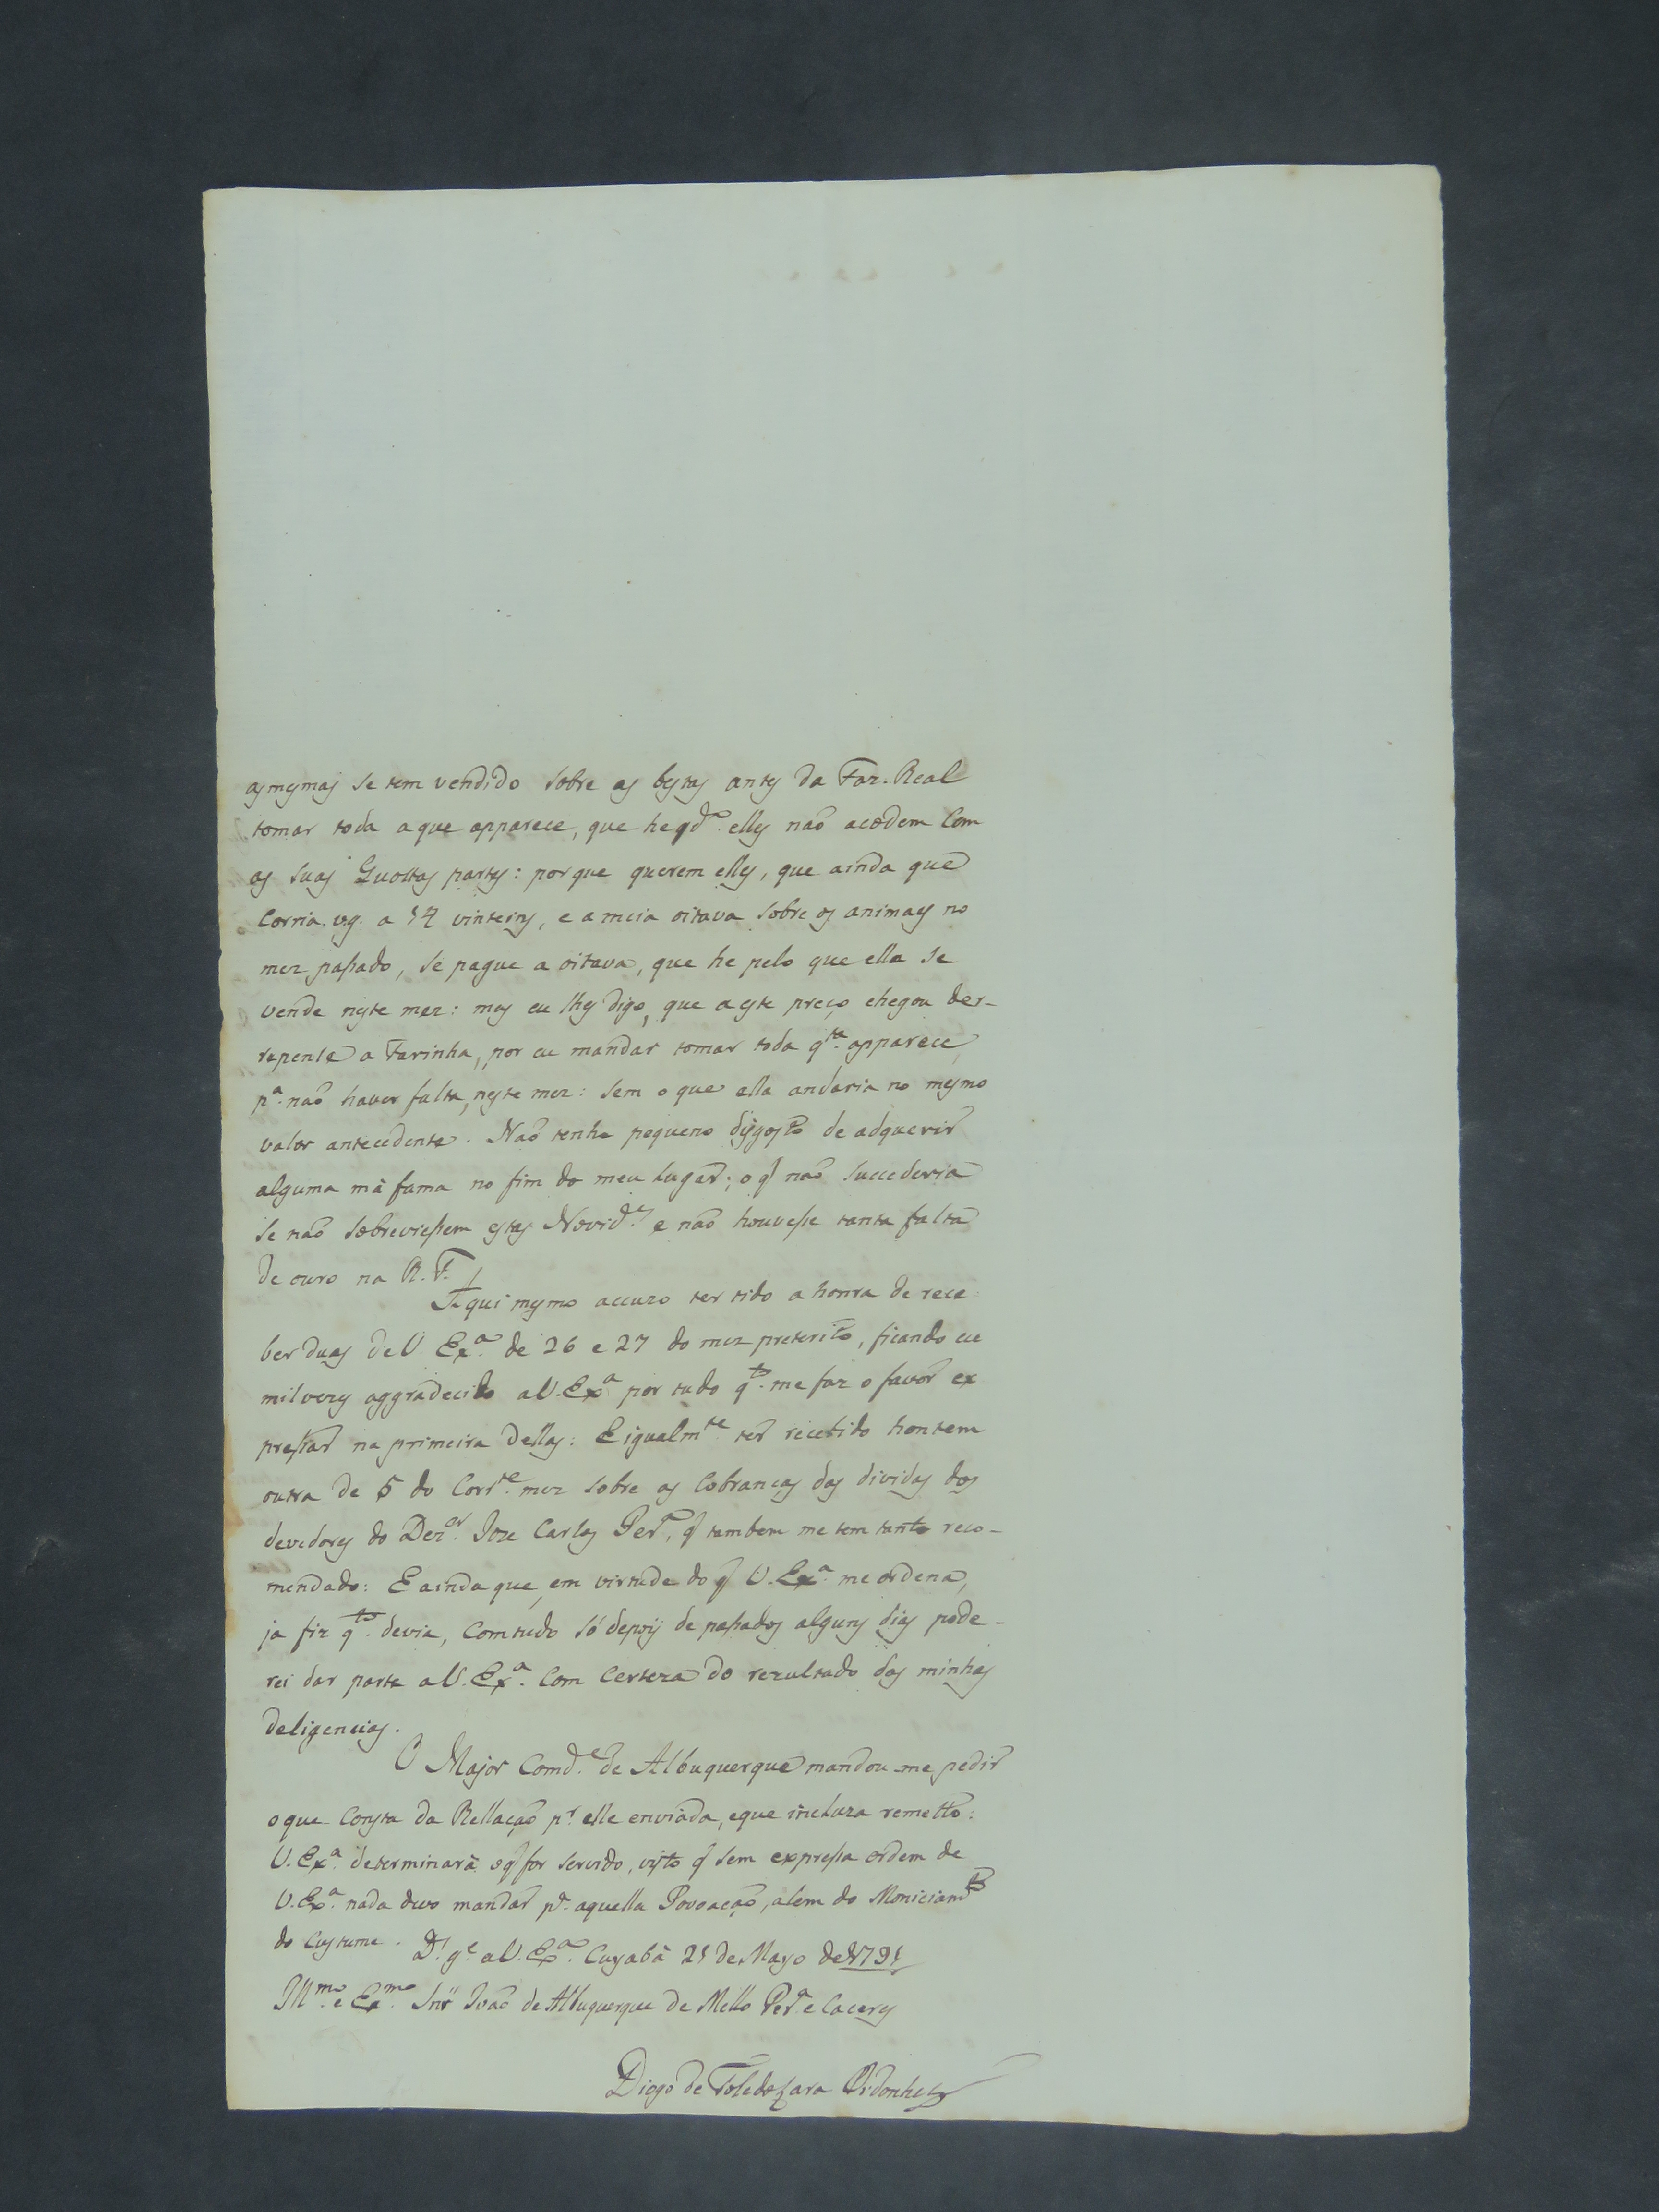 as mesmas se tem vendido sobre as bestas antes da Faz. Real
tomar toda a que apparece, que he qdo. elles naõ acodem Com
as suas Quottas partes: porque querem elles, que ainda que
Corria. vg. a 14 vinteins, e a meia oitava sobre os animaes no
mez passado, se pague a oitava, que he pelo que ella se
vende neste mez: mas eu lhes digo, que a este preço chegou der-
repente a Farinha, por eu mandar tomar toda qta. apparece
pa. naõ haver falta, neste mez: sem o que ella andaria no mesmo
valor antecedente. Naõ tenho pequeno disgosto de adquerir
alguma mà fama no fim do meu lugar; o q̃ naõ succederia
se naõ sobreviessem estas Novides. e naõ houvesse tanta falta
de ouro na R. F.
Aqui mesmo accuzo ter tido a honra de rece
ber duas de V. Exa. de 26 e 27 do mez preterito, ficando eu
mil vezes aggradecido a V. Exa. por tudo qto. me faz o favor ex
pressar na primeira dellas: E igualmte. ter recebido hontem
outra de 5 do Corrte. mez sobre as Cobrancas das dividas dos
devedores do Dezor. Joze Carlos Pera. q̃ tambem me tem tanto reco-
mendado: E ainda que, em virtude do q̃ V. Exa. me ordena,
ja fiz qto. devia, Comtudo só depois de passados alguns dias pode-
rei dar parte a V. Exa. Com Certeza do rezultado das minhas
deligencias.
O Major Comde. de Albuquerque mandou-me pedir
o que Consta da Rellaçaõ pr. elle enviada, e que incluza remetto:
V. Exa. determinarà o q̃ for servido, visto q̃ sem expressa ordem de
V. Exa. nada devo mandar pa. aquella Povoaçaõ, alem do Moniciamto
do Custume. Ds. ge. a V. Exa. Cuyabà 21 de Mayo de 1791
Illmo. e Exmo. Snr. Joaõ de Albuquerque de Mello Pera. e Caceres
Diogo de Toledo Lara Ordonhes